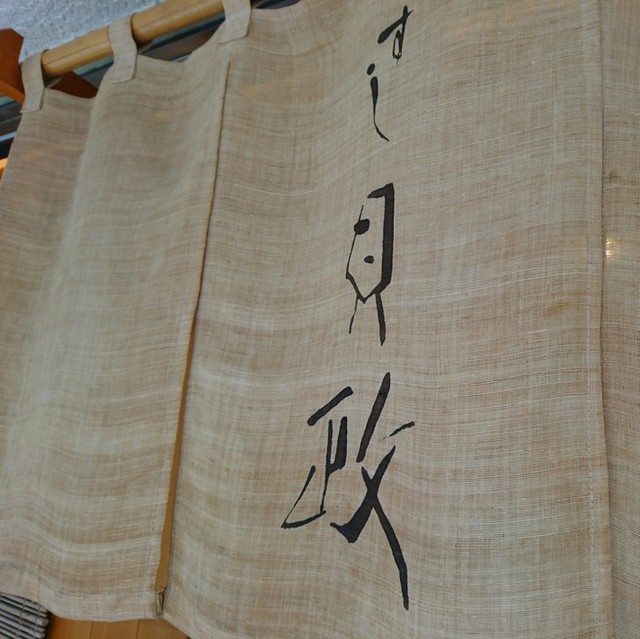 すし貝政